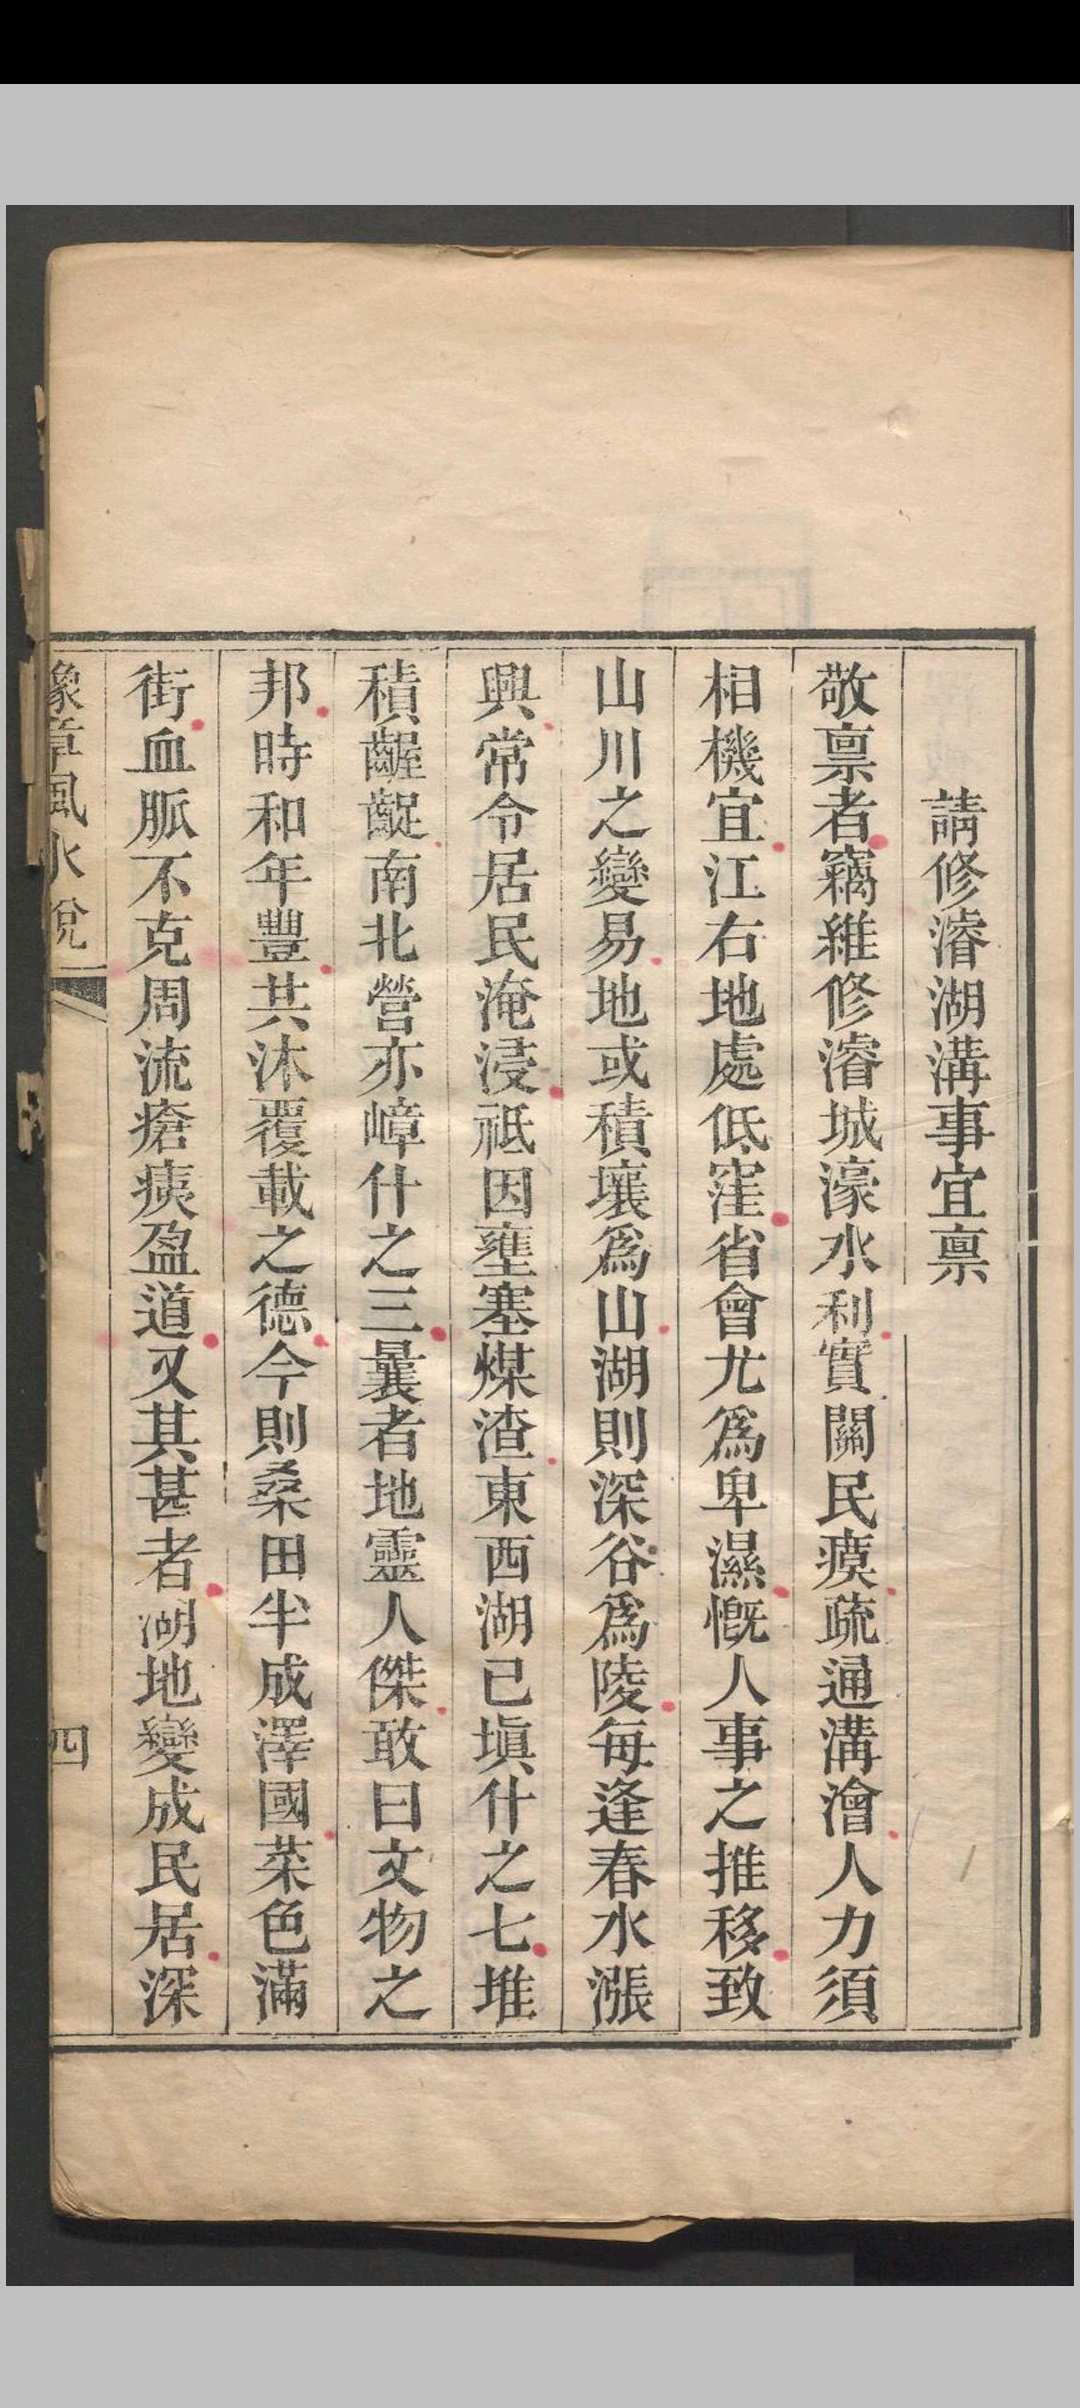 請修濬湖溝事宜稟
敬稟者竊維修濬城濠水利實關民瘼疏通溝澮人力須
相機宜江右地處低窪省會尤爲卑濕慨人事之推移致
山川之變易地或積壤爲山湖則深谷爲陵每逢春水漲
興常令居民淹浸祗因壅塞煤渣東西湖已塡什之七堆
積齷齪南北營亦嶂什之三曩者地靈人傑敢曰文物之
邦時和年豐共沐覆載之德今則桑田半成澤國菜色滿
街血脈不克周流瘡痍盈道又其甚者湖地變成民居深
豫章風水說
四